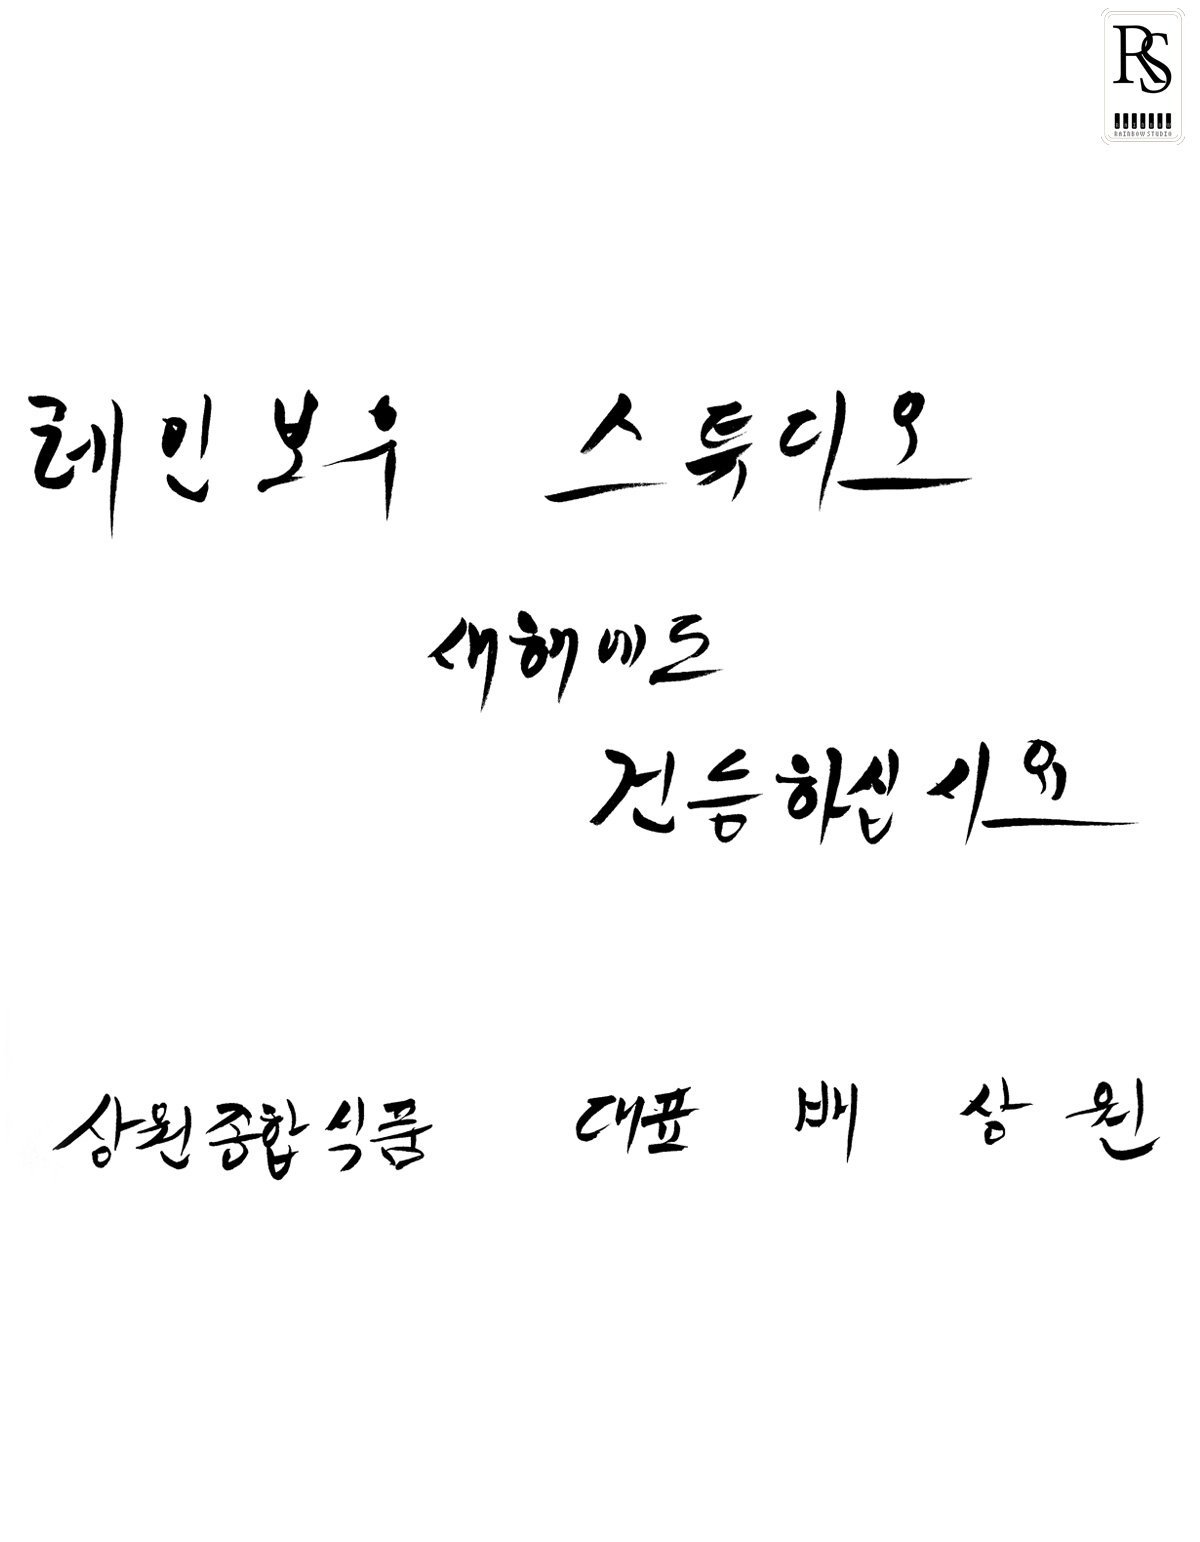 RS
RAINBOW STUDIO
레인보우 스튜디오
새해에도
건승하십시요
상원종합식품 대표 배 상 원